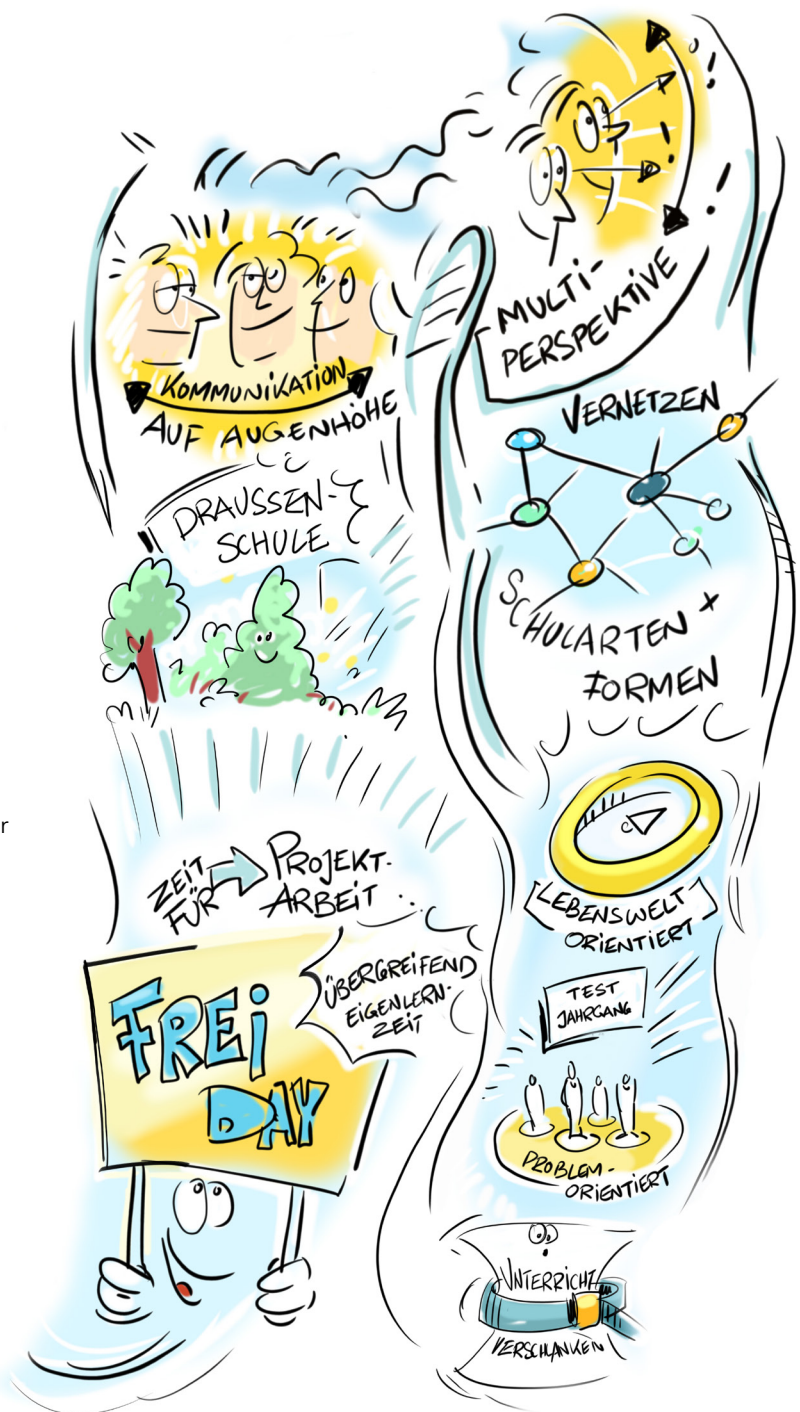 KOMMUNIKATION
AUF AUGENHÖHE
DRAUSSEN-
SCHULE
ZEIT
FÜR
PROJEKT-
ARBEIT ...
FREI
DAY
ÜBERGREIFEND
EIGENLERN-
ZEIT
MULTI-
PERSPEKTIVE
VERNETZEN
SCHULARTEN +
FORMEN
LEBENSWELT
ORIENTIERT
TEST
JAHRGANG
PROBLEM-
ORIENTIERT
UNTERRICHT
VERSCHLANKEN
r